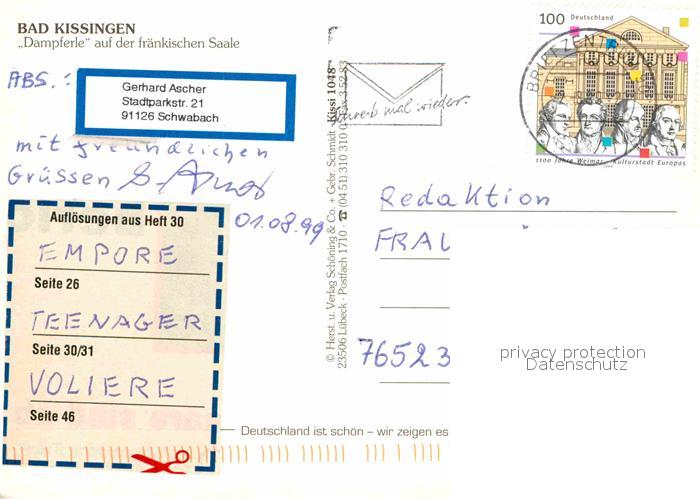 BAD KISSINGEN
„Dampferle" auf der fränkischen Saale
ABS.:
Gerhard Ascher
Stadtparkstr. 21
91126 Schwabach
mit freundlichen
Grüssen
01.08.99
Auflösungen aus Heft 30
EMPORE
Seite 26
TEENAGER
Seite 30/31
VOLIERE
Seite 46
Deutschland ist schön – wir zeigen es
© Herst. u. Verlag Schöning & Co. + Gebr. Schmidt
23506 Lübeck · Postfach 1710 · ☎ (04 51) 310 310
Kissi 1048
mal wieder.
100 Deutschland
BRIEFZENT
1100 Jahre Weimar · Kulturstadt Europas
Redaktion
FRAU
76523
privacy protection
Datenschutz